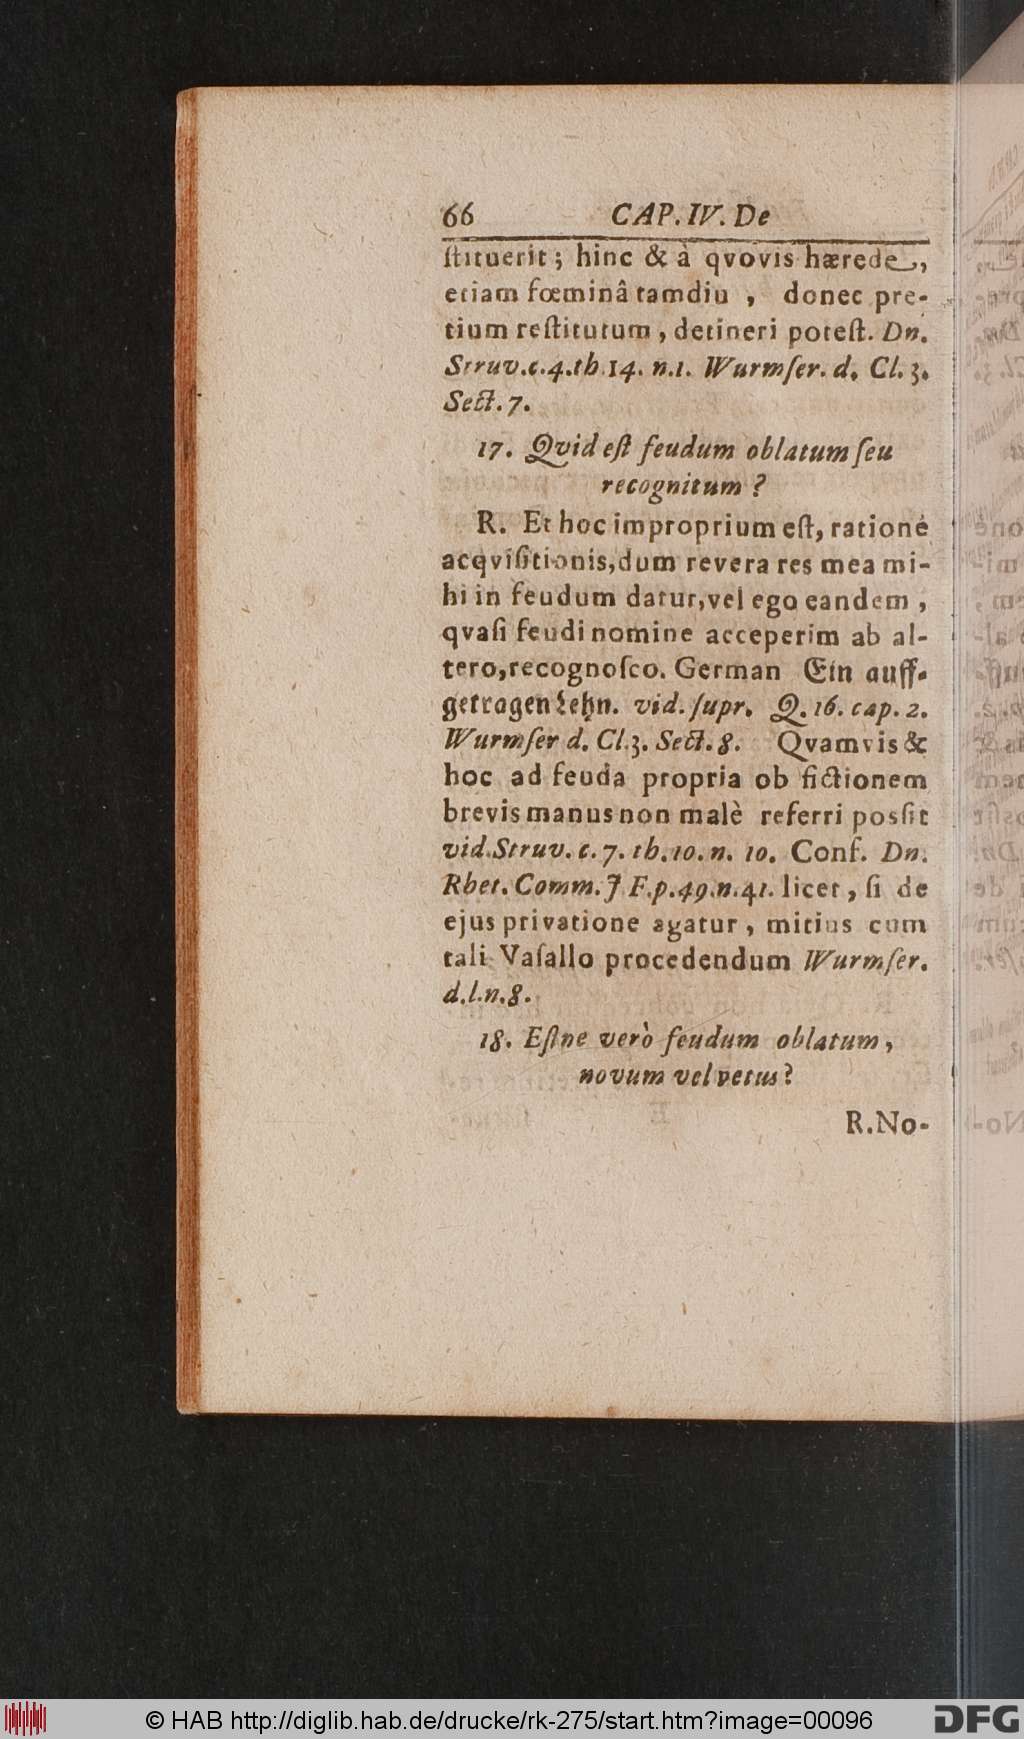 66 CAP. IV. De
ſtituerit; hinc & à qvovis hærede,
etiam fœminâ tamdiu, donec pre-
tium reſtitutum, detineri poteſt. Dn.
Struv. c. 4. th. 14. n. 1. Wurmſer. d. Cl. 3.
Sect. 7.
17. Qvid eſt feudum oblatum ſeu
recognitum?
R. Et hoc improprium eſt, ratione
acqviſitionis, dum revera res mea mi-
hi in feudum datur, vel ego eandem,
qvaſi feudi nomine acceperim ab al-
tero, recognoſco. German Ein auff-
getragen Lehn. vid. ſupr. Q. 16. cap. 2.
Wurmſer d. Cl. 3. Sect. 8. Qvamvis &
hoc ad feuda propria ob fictionem
brevis manus non malè referri posſit
vid. Struv. c. 7. th. 10. n. 10. Conf. Dn.
Rhet. Comm. J F. p. 49. n. 41. licet, ſi de
ejus privatione agatur, mitius cum
tali Vaſallo procedendum Wurmſer.
d. l. n. 8.
18. Eſtne verò feudum oblatum,
novum vel vetus?
R. No-
© HAB http://diglib.hab.de/drucke/rk-275/start.htm?image=00096 DFG